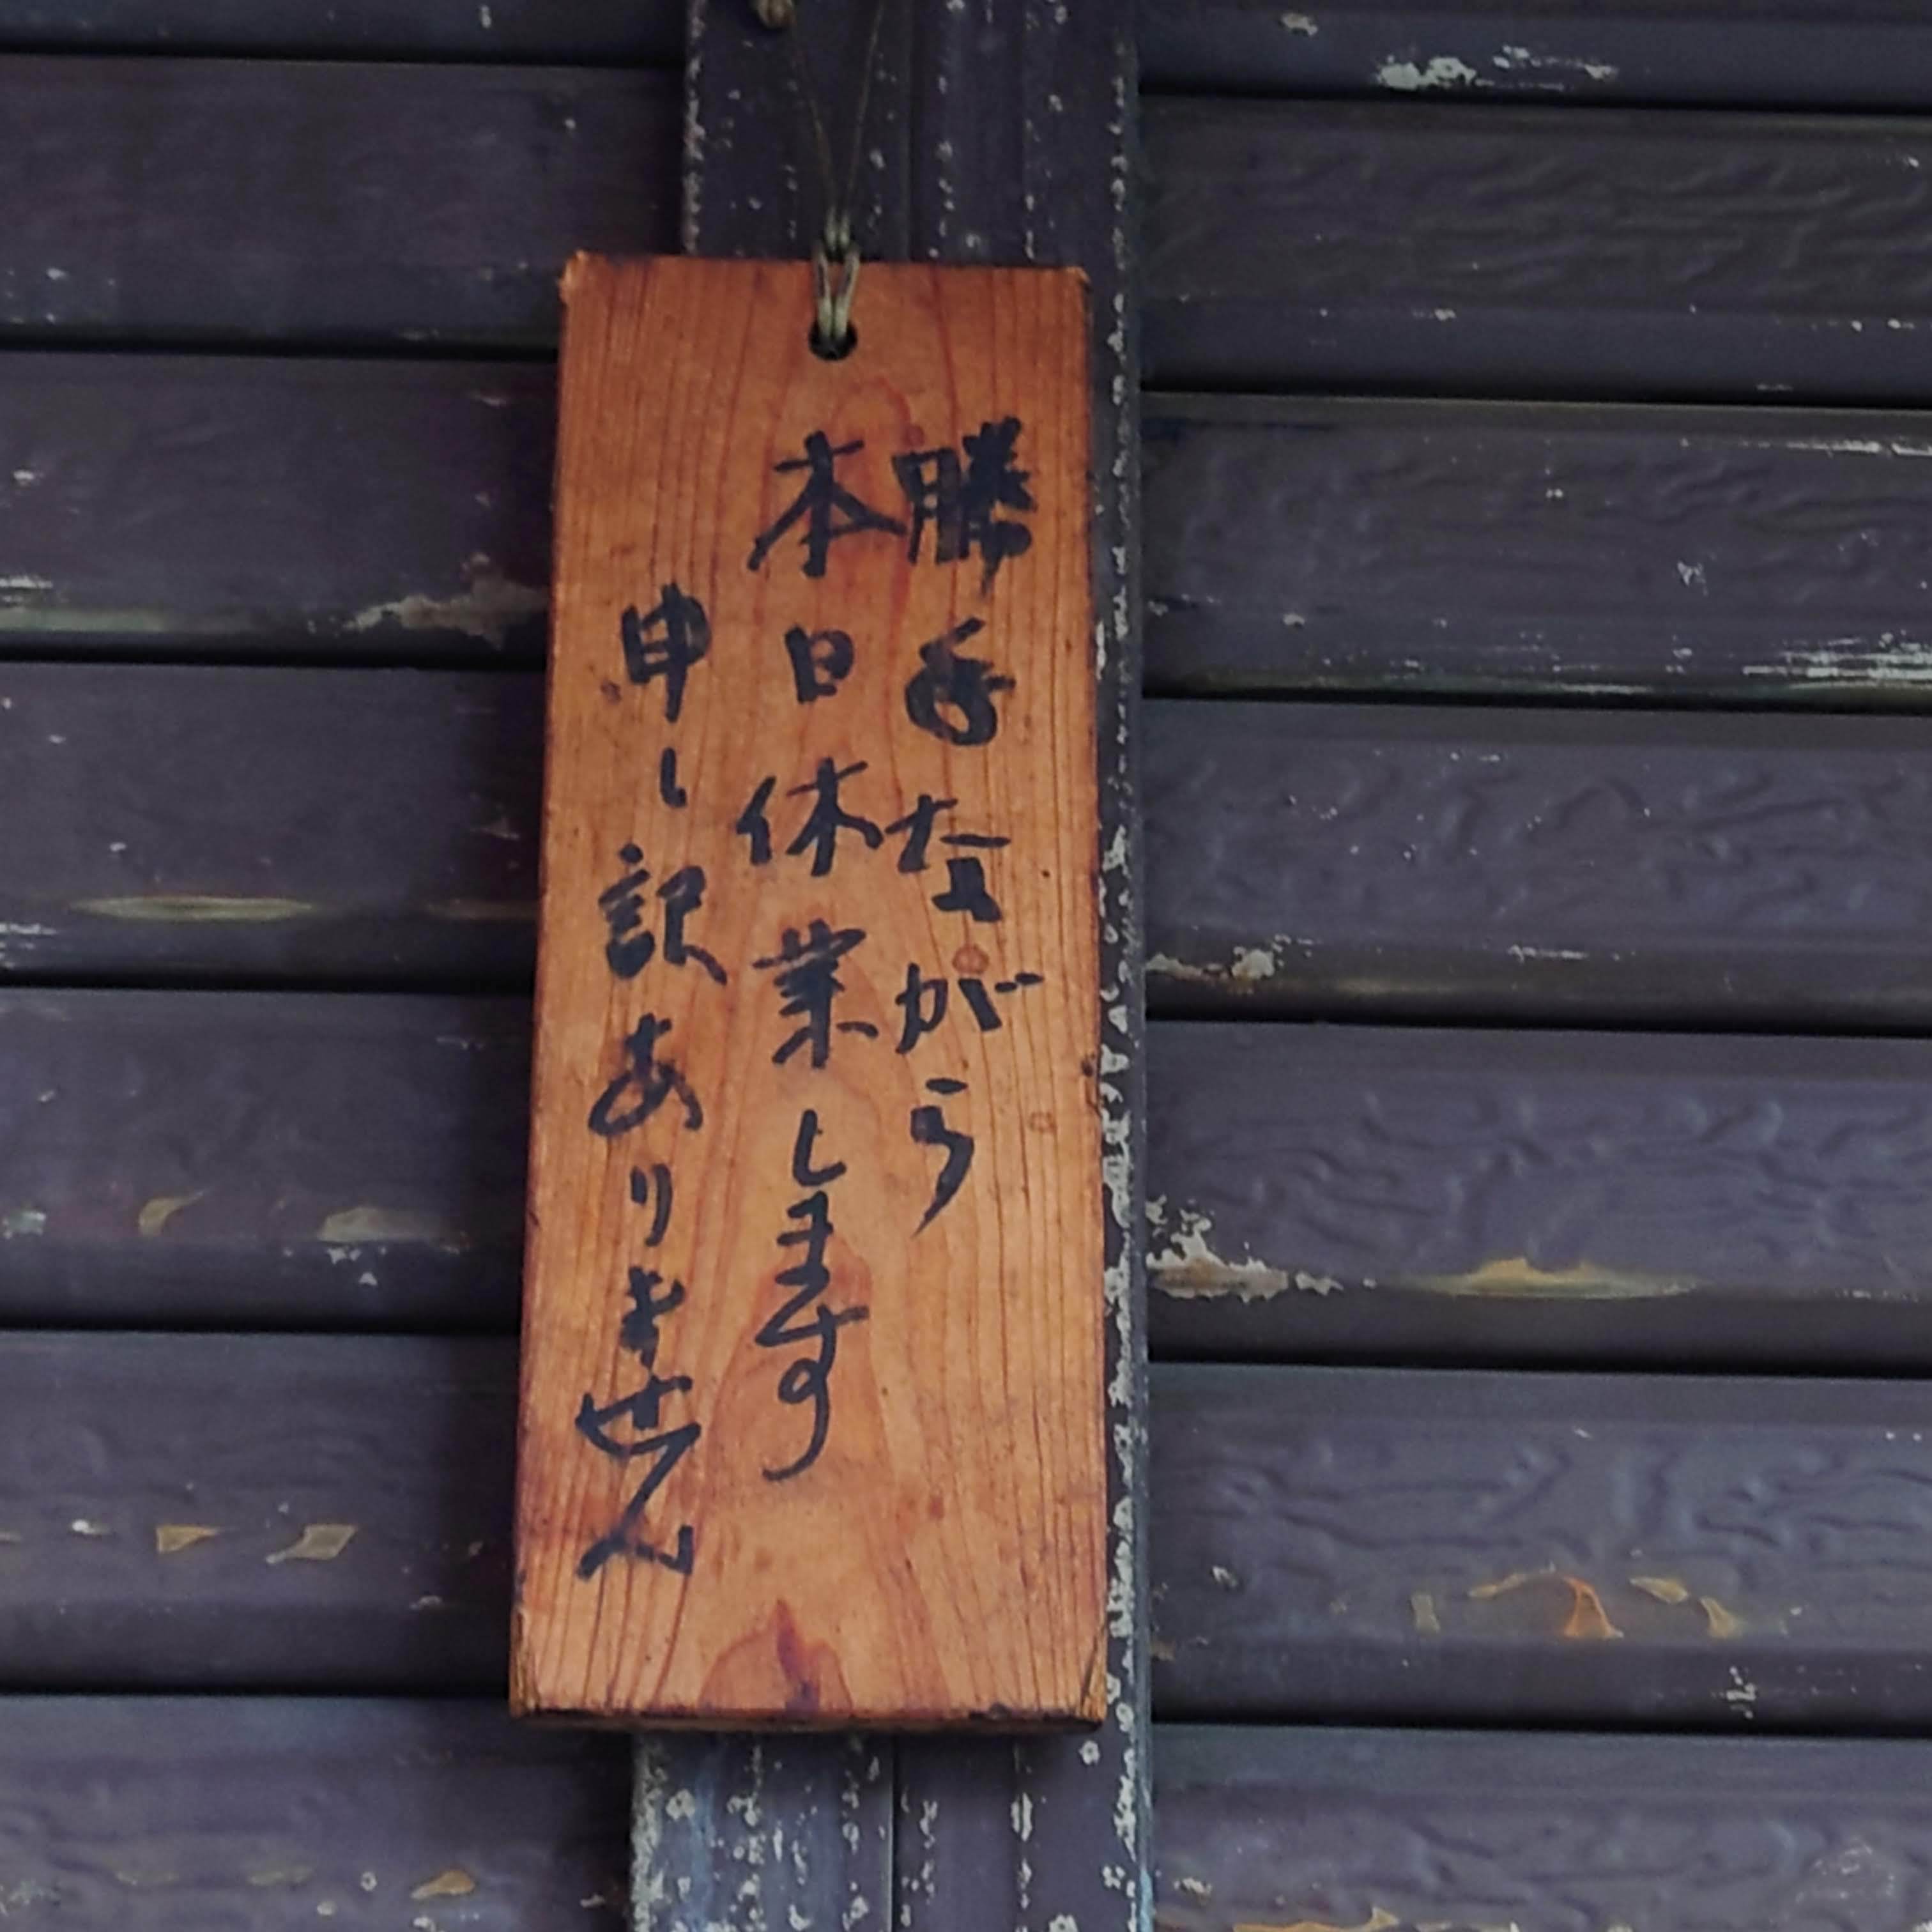 勝手ながら
本日休業します
申し訳ありません